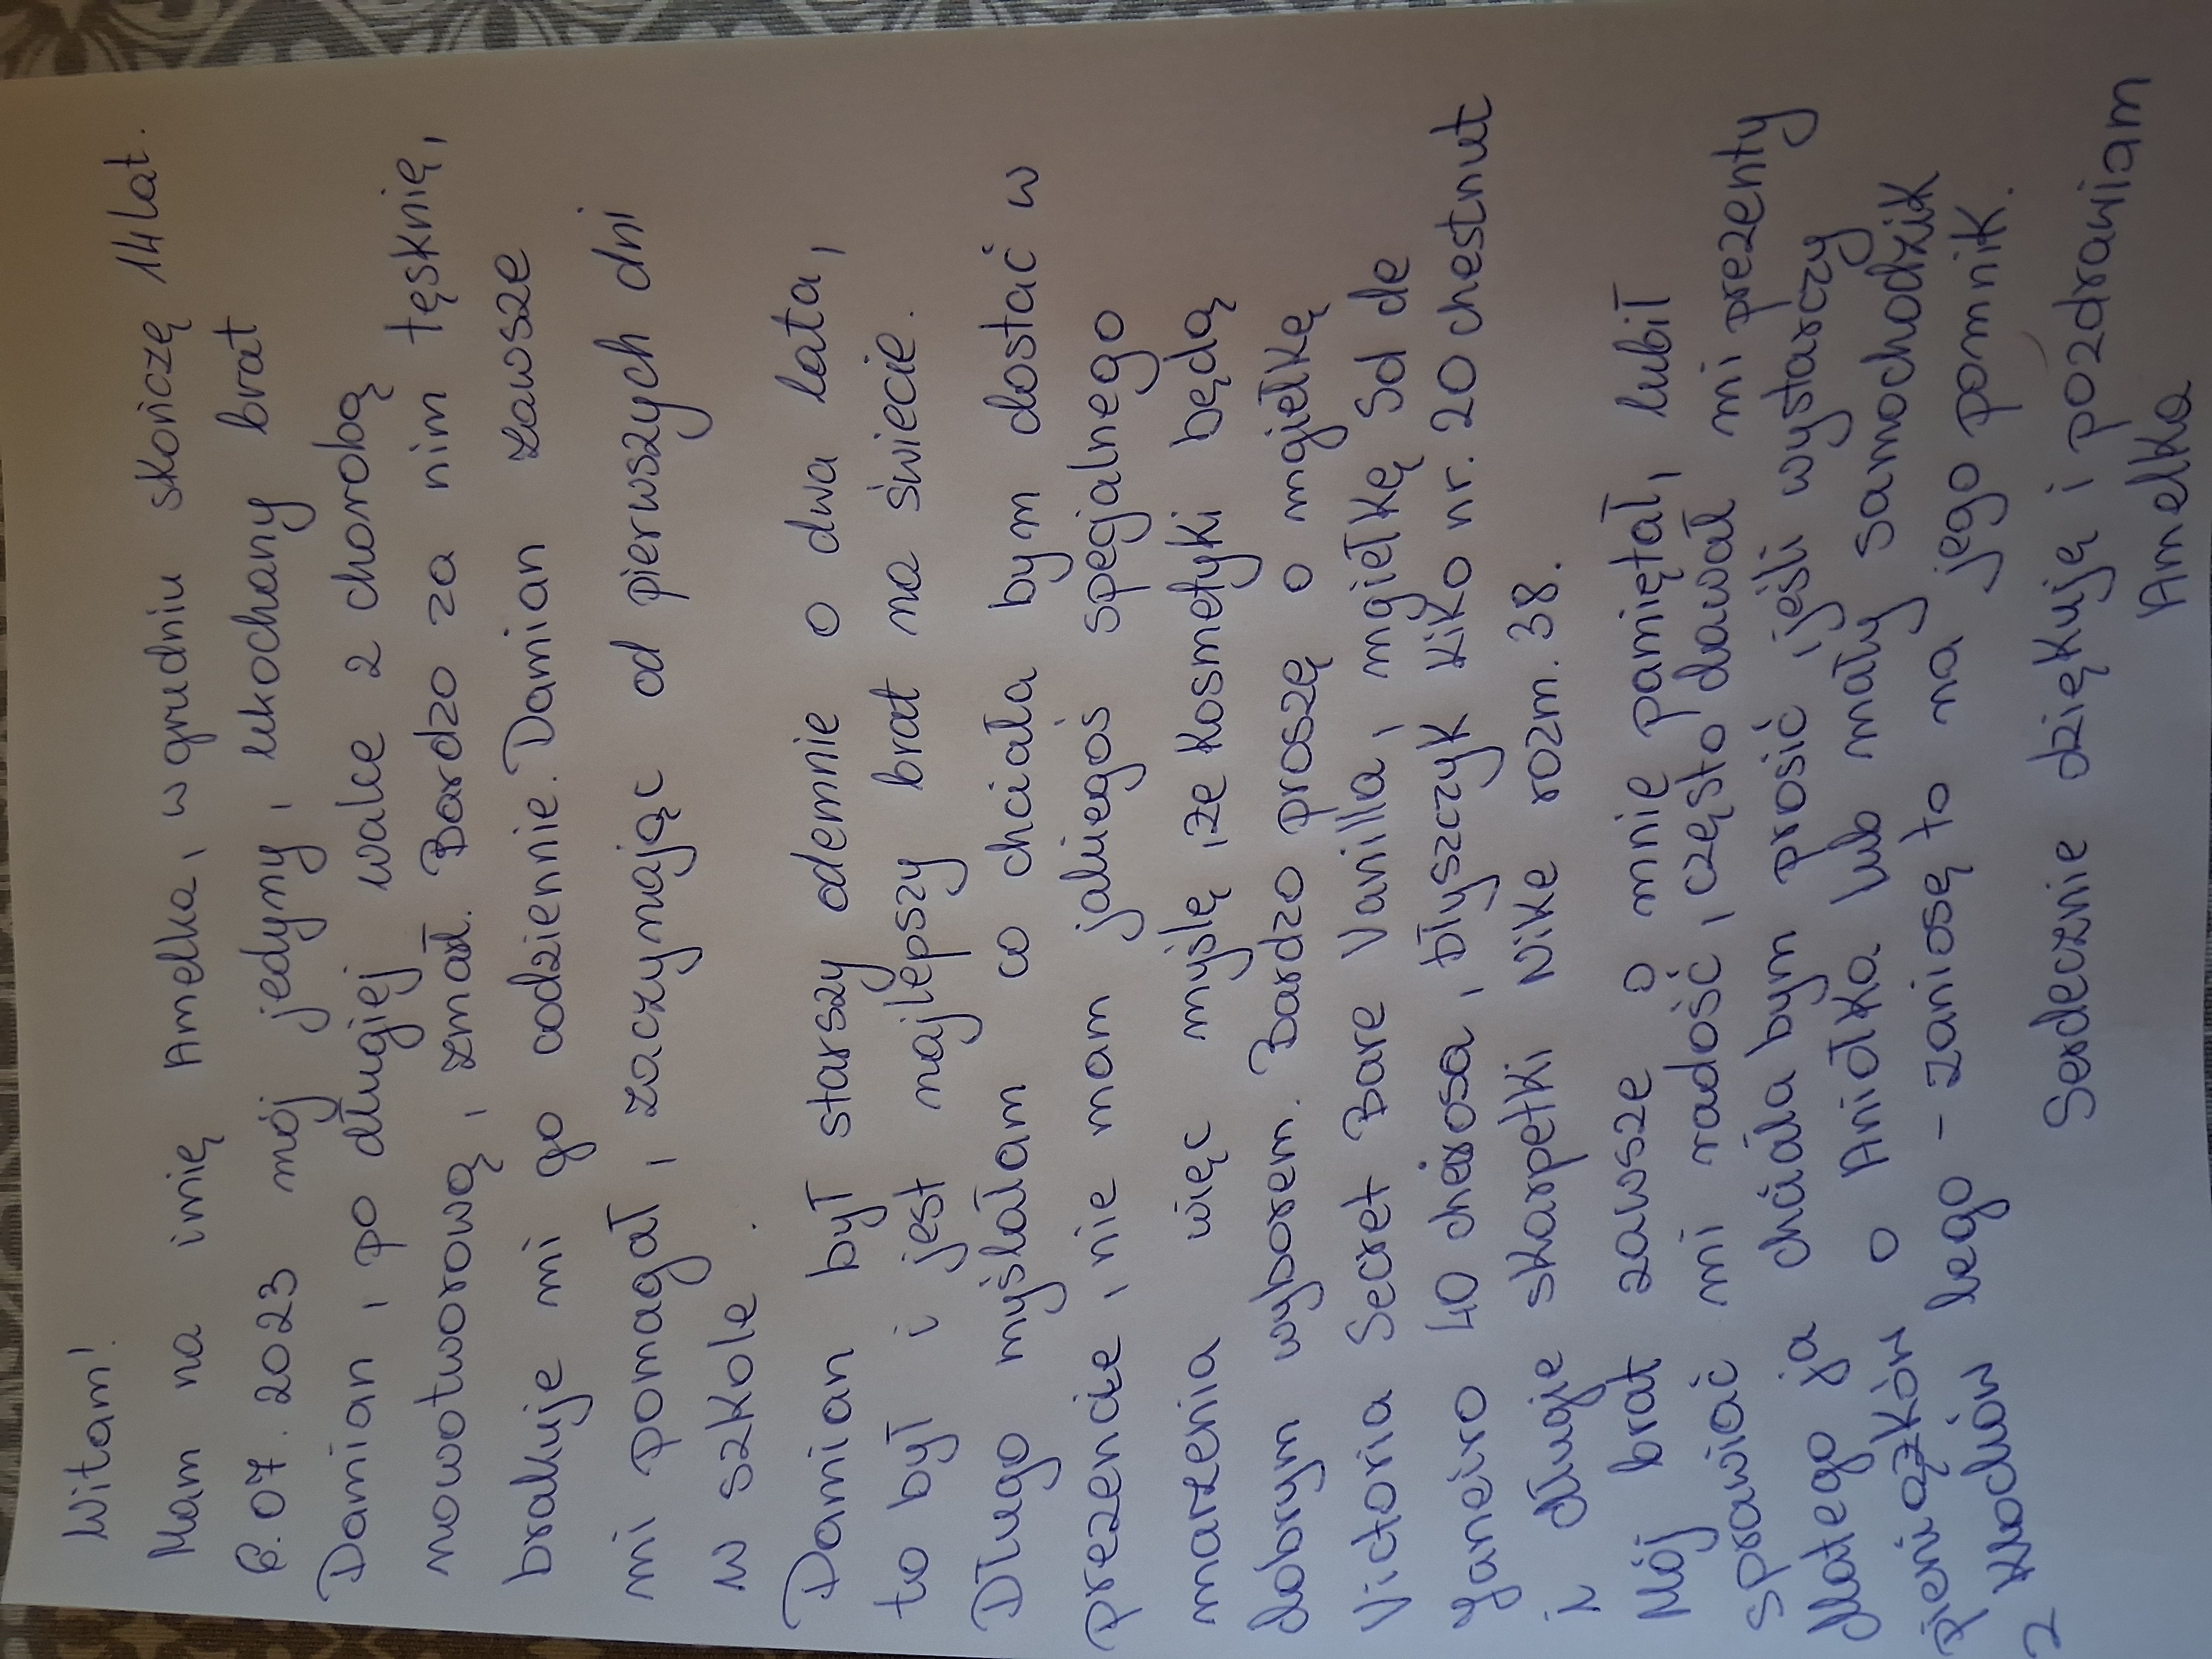 Witam!
Mam na imię Amelka, w grudniu skończę 14 lat.
6.07.2023 mój jedyny, ukochany brat
Damian, po długiej walce z chorobą
nowotworową, zmarł. Bardzo za nim tęsknię,
brakuje mi go codziennie. Damian zawsze
mi pomagał, zaczymając od pierwszych dni
w szkole.
Damian był starszy odemnie o dwa lata,
to był i jest najlepszy brat na świecie.
Długo myślałam co chciała bym dostać w
prezencie, nie mam jakiegoś specjalnego
marzenia więc myślę, że kosmetyki będą
dobrym wyborem. Bardzo proszę o mgiełkę
Victoria Secret Bare Vanilla, mgiełkę Sol de
Janeiro 40 cheirosa, błyszczyk kiko nr. 20 chestnut
i długie skarpetki Nike rozm. 38.
Mój brat zawsze o mnie pamiętał, lubił
sprawiać mi radość, często dawał mi prezenty
dlatego ja chciała bym prosić, jeśli wystarczy
pieniązków o Aniołka lub mały samochodzik
z klocków lego - zaniosę to na jego pomnik.
Serdecznie dziękuję i pozdrawiam
Amelka